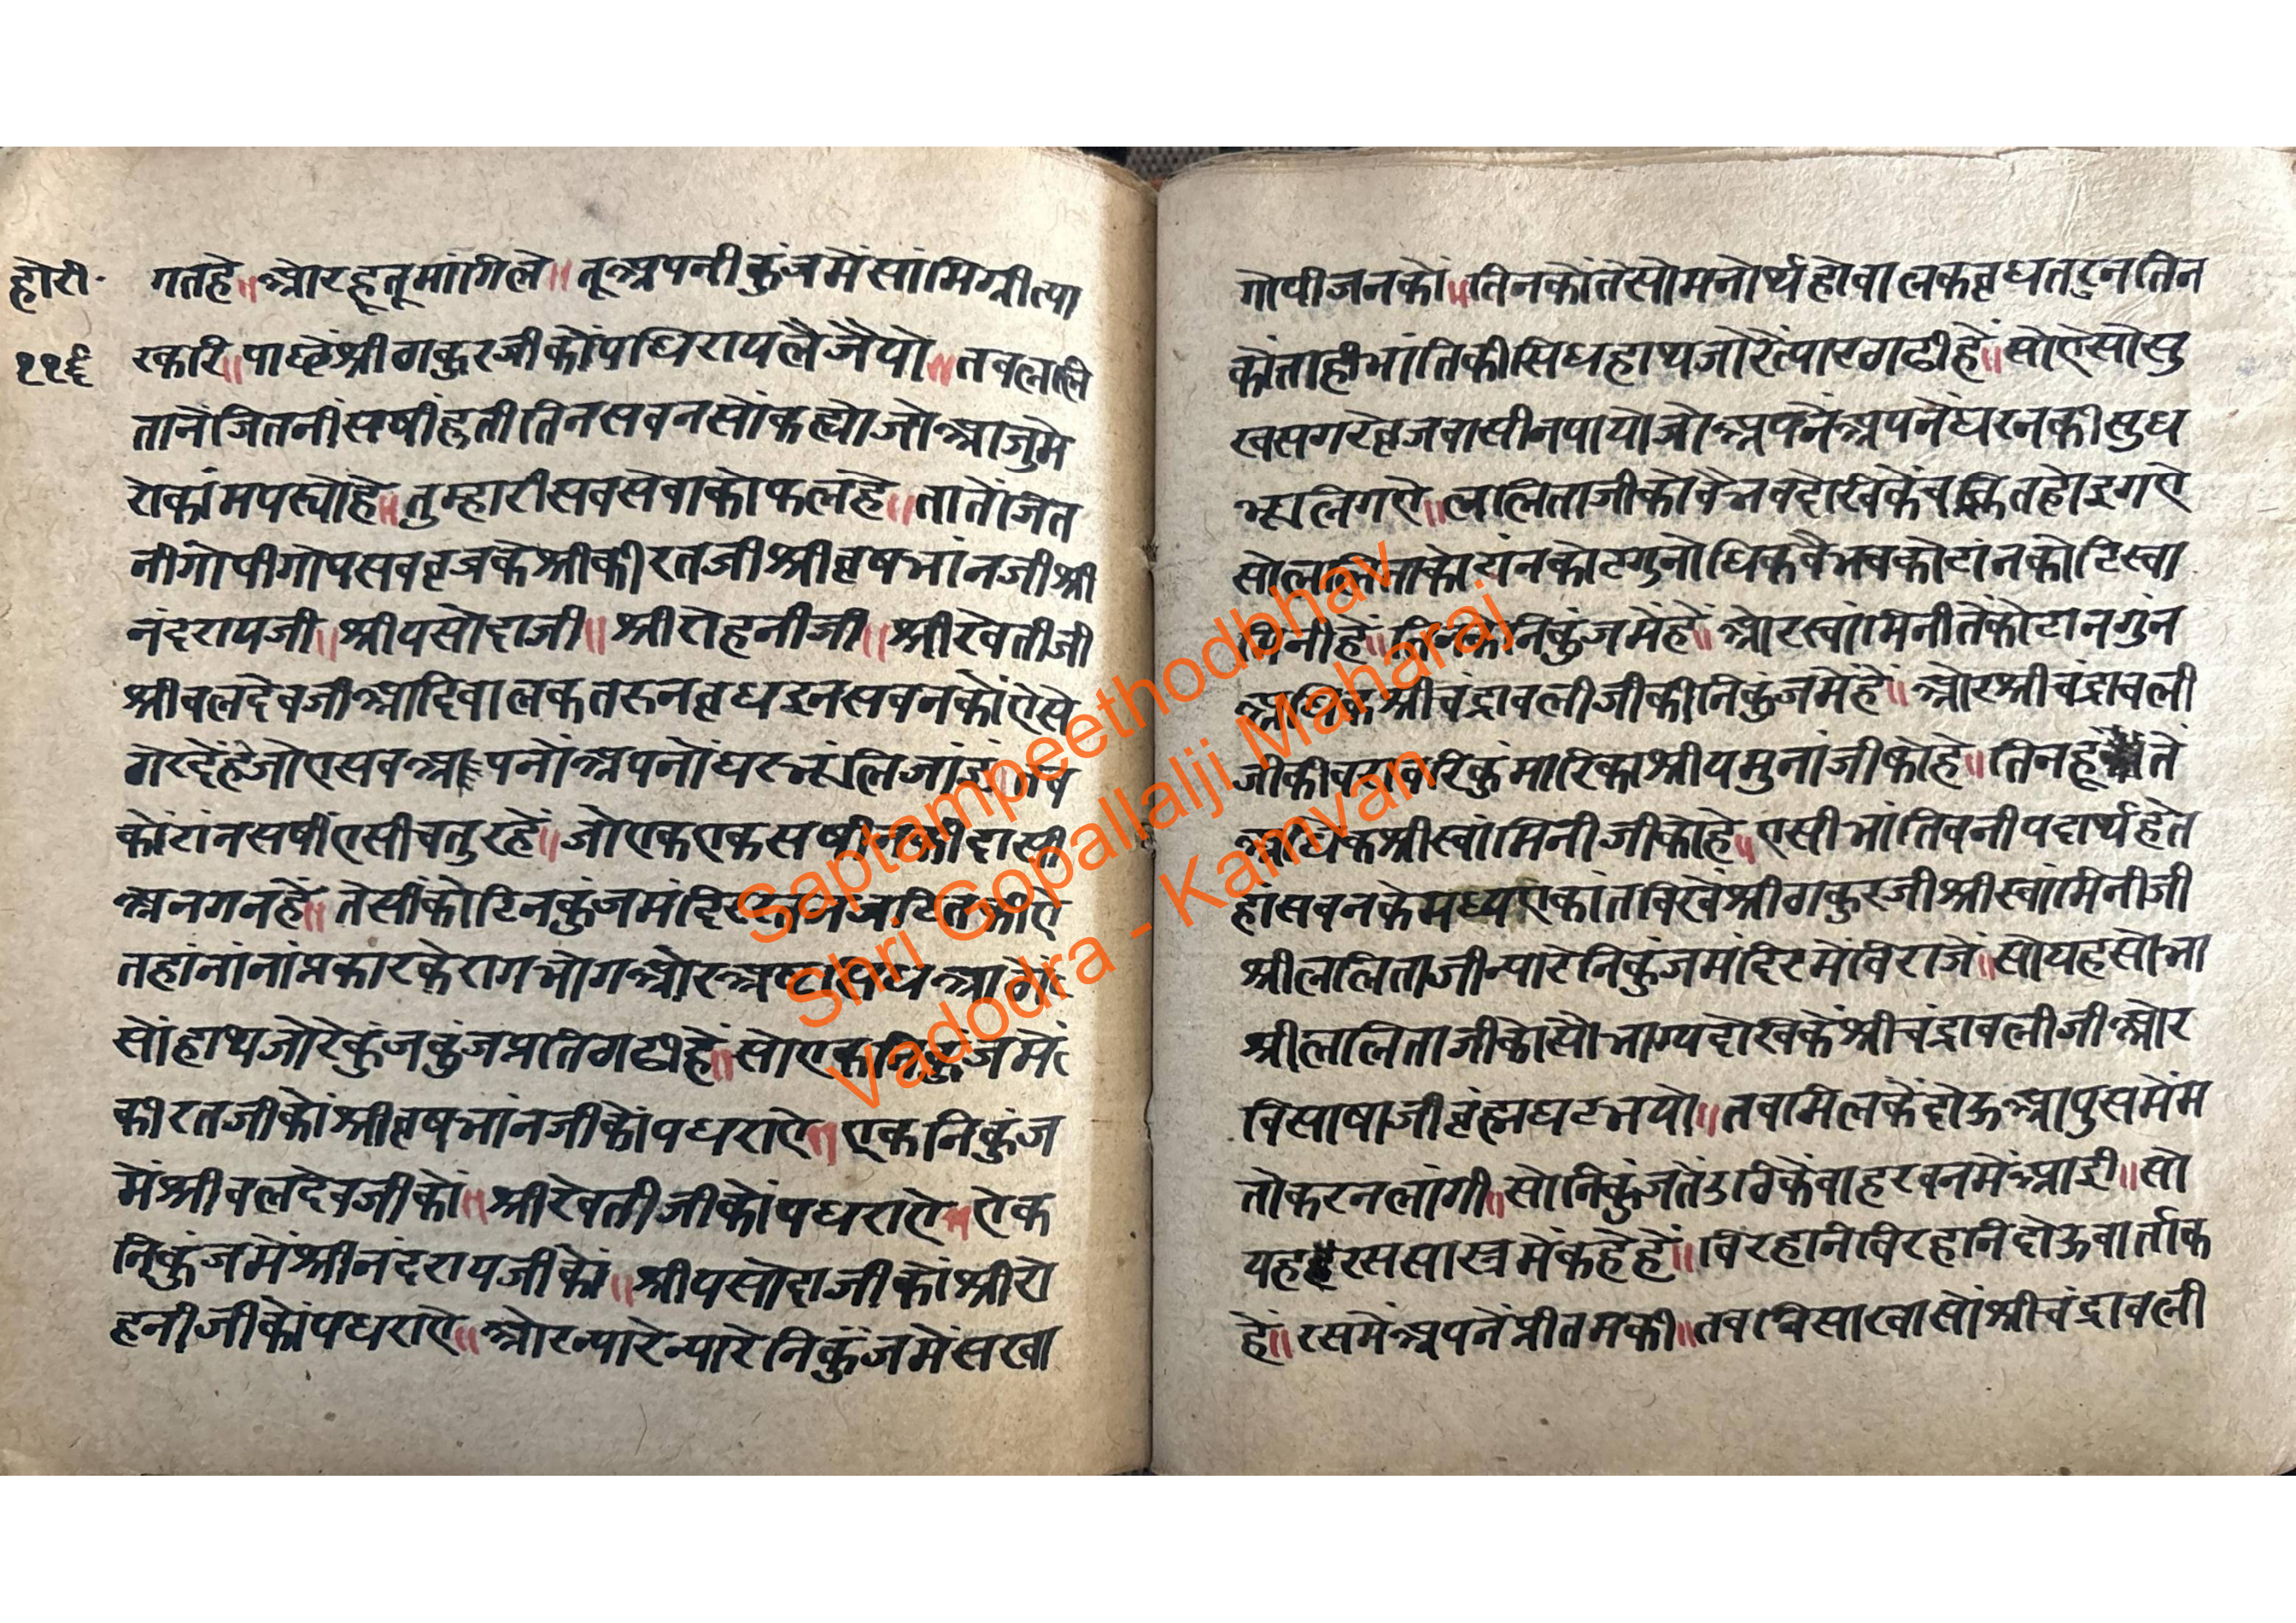 होरी॰
११६
गतहे॥ ओरहू तू मांगिले॥ तू अपनी कुंजमें सांमिग्री त्या
रकरि॥ पाछें श्रीठाकुरजीकों पधिराय लै जैयो॥ तव ललि
तानें जितनीं सषीं हुती तिन सवनसों कह्यो जो आजु मे
रो कांम पस्यो हे॥ तुम्हारी सव सेवा को फल हे॥ तातें जित
नी गोपी गोप सव व्रजके श्री कीरतजी श्री व्रषभांनजी श्री
नंदरायजी॥ श्री यसोदाजी॥ श्री रोहनीजी॥ श्री रेवतीजी
श्री वलदेवजी आदि वालक तरुन व्रध इन सवनकों ऐसे
गेर दें हे जो ए सव आपनों अपनों घर भूलि जांइ
कोटांन सषीं एसी चतुर हें॥ जो एक एक सषी की दासी
अनगन हें॥ तेसीं कोटिन कुंज मंदिर
तहां नांनां प्रकारके राग भोग ओर
सों हाथ जोरे कुंज कुंज प्रति ठाढी हें॥ सो एक निकुंजमें
कीरतजीकों श्री व्रषभांनजीकों पधराऐ॥ एक निकुंज
में श्री वलदेवजीकों॥ श्री रेवतीजीकों पधराऐ॥ ऐक
निकुंजमें श्री नंदरायजीकों॥ श्री यसोदाजीकों श्री रो
हनीजीकों पधराऐ॥ ओर न्यारे न्यारे निकुंजमें सखा
गोपीजनकों॥ तिनकों तेसो मनोर्थ हो वालक व्रध तरुन तिन
कों ताही भांतिकी सिध हाथ जोरें त्यार ठाढी हें॥ सो ऐसो सु
ख सगरे व्रजवासीन पायो जो अपनें अपनें घरनकी सुध
भूलि गऐ॥ ललिताजीको वैभव देखिकें चक्रित होइ गऐ
सो ललिताको कोटगुनो धिक वैभव कोटांन कोटि स्वा
मिनी हें॥ तिनकें निकुंजमें हें॥ ओर स्वांमिनीतें कोटान गुंन
अधिक श्री चंद्रावलीजीकी निकुंजमें हें॥ ओर श्री चंद्रावली
जीकी वरावरि कुंमारिका श्री यमुनांजीको हे॥ तिन हू तें
अधिक श्री स्वांमिनीजीको हे॥ एसी भांति वनी पदार्थ हे त
हां सवनके मध्य एकांत विखें श्री ठाकुरजी श्री स्वांमिनीजी
श्री ललिताजी न्यारे निकुंज मंदिरमें विराजें॥ सो यह सोभा
श्री ललिताजीको सौभाग्य देखिकें श्री चंद्रावलीजी ओर
विसाषाजी व्रंह्म घट भयो॥ तव मिलकें दोऊ आपुसमें म
तो करन लागी॥ सो निकुंजतें उठिकें वाहर वनमें आई॥ सो
यह रससास्त्रमें कहे हें॥ विरहानि विरहानि दोऊ वार्ता क
हें॥ रसमें अपनें प्रीतमकी॥ तव विसाखासों श्री चंद्रावली
Saptampeethodbhav
Shri Gopallalji Maharaj
Vadodra - Kamvan